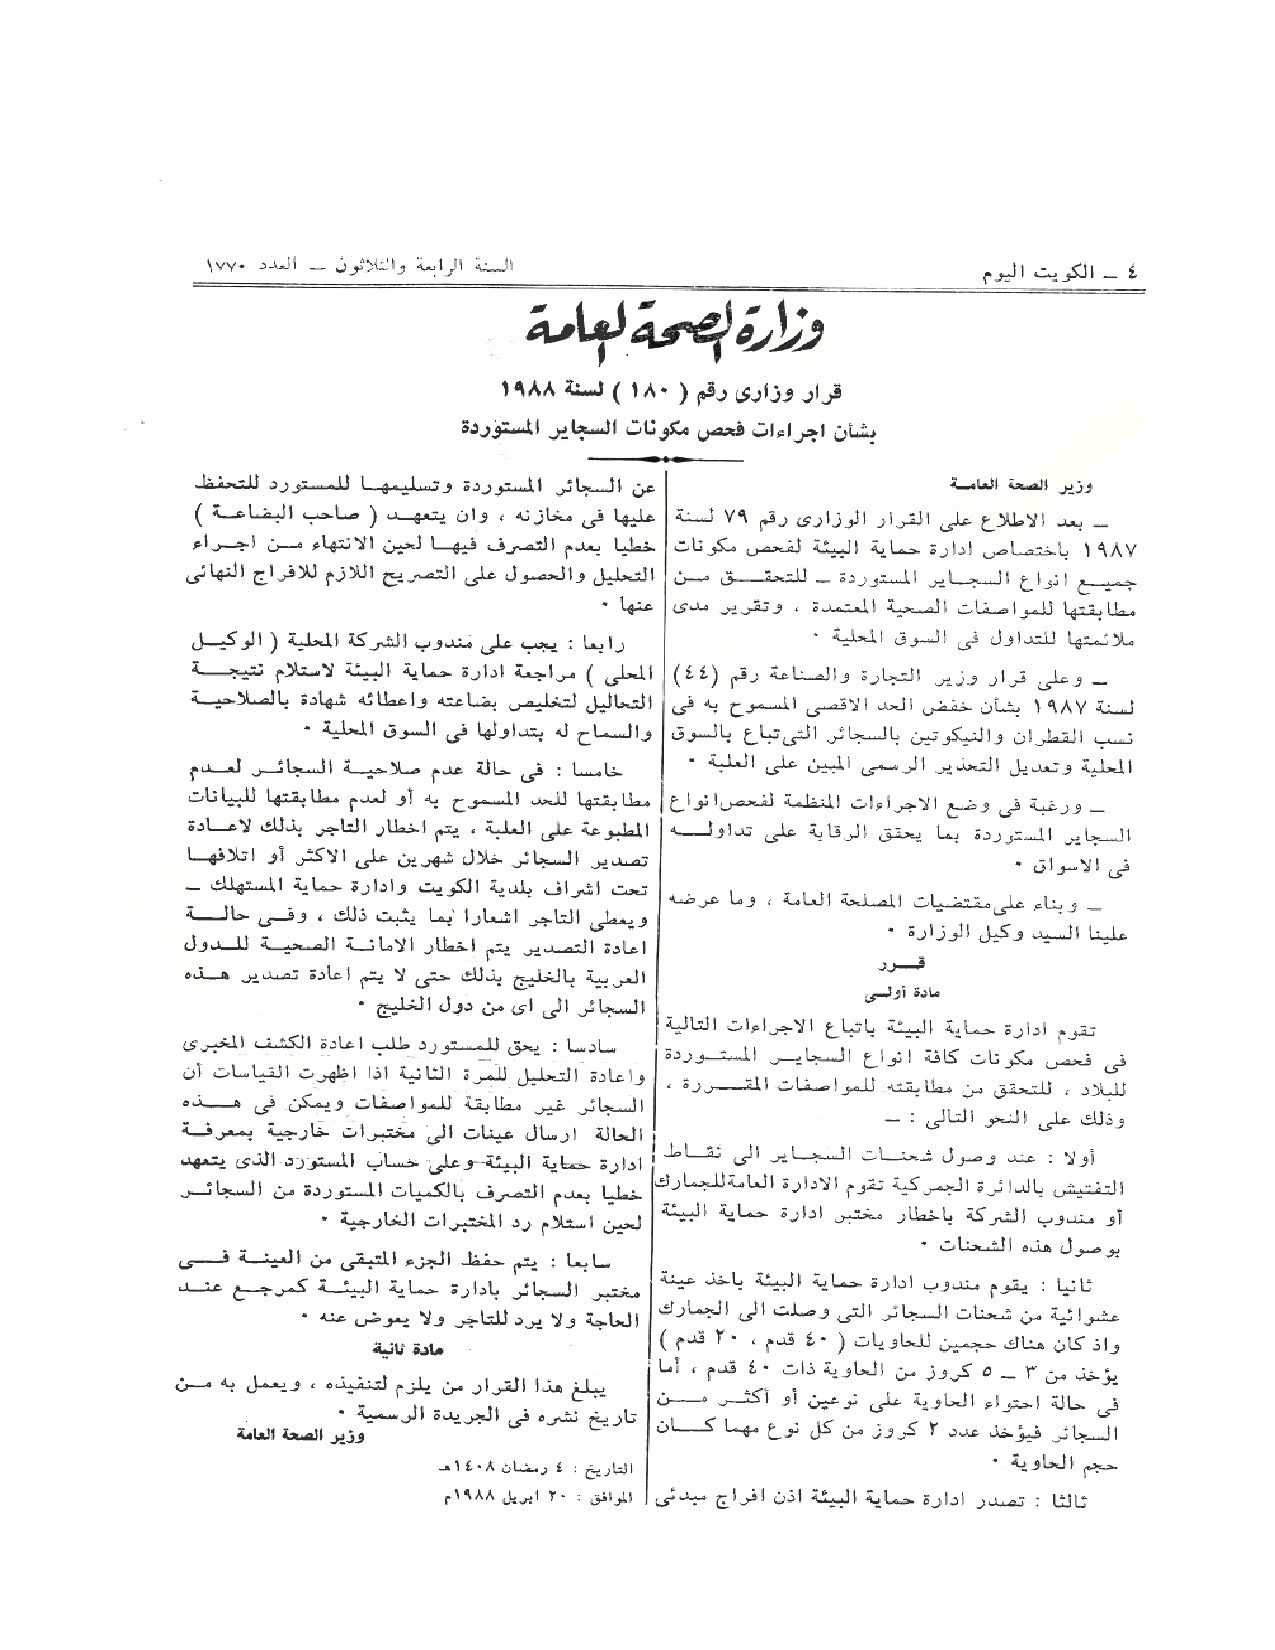 ٤ ــ الكويت اليوم
السنة الرابعة والثلاثون ــ العدد ١٧٧٠
وزارة الصحة العامة
قرار وزارى رقم ( ١٨٠ ) لسنة ١٩٨٨
بشأن اجراءات فحص مكونات السجاير المستوردة
وزير الصحة العامـة
ــ بعد الاطلاع على القرار الوزارى رقم ٧٩ لسنة
١٩٨٧ باختصاص ادارة حماية البيئة لفحص مكونات
جميـع انواع السجـاير المستوردة ــ للتحقـق مـن
مطابقتها للمواصفات الصحية المعتمدة ، وتقرير مدى
ملائمتها للتداول فى السوق المحلية ٠
ــ وعلى قرار وزير التجارة والصناعة رقم (٤٤)
لسنة ١٩٨٧ بشأن خفض الحد الاقصى المسموح به فى
نسب القطران والنيكوتين بالسجائر التى تباع بالسوق
المحلية وتعديل التحذير الرسمى المبين على العلبة ٠
ــ ورغبة فى وضع الاجراءات المنظمة لفحص انواع
السجاير المستوردة بما يحقق الرقابة على تداولـه
فى الاسواق ٠
ــ وبناء على مقتضيات المصلحة العامة ، وما عرضه
علينا السيد وكيل الوزارة ٠
قـــرر
مادة أولـى
تقوم ادارة حماية البيئة باتباع الاجراءات التالية
فى فحص مكونات كافة انواع السجايـر المستـوردة
للبلاد ، للتحقق من مطابقته للمواصفات المقــررة ،
وذلك على النحو التالى : ــ
أولا : عند وصول شحنـات السجـاير الى نقـاط
التفتيش بالدائرة الجمركية تقوم الادارة العامة للجمارك
أو مندوب الشركة باخطار مختبر ادارة حماية البيئة
بوصول هذه الشحنات ٠
ثانيا : يقوم مندوب ادارة حماية البيئة باخذ عينة
عشوائية من شحنات السجائر التى وصلت الى الجمارك
واذ كان هناك حجمين للحاويات ( ٤٠ قدم ، ٢٠ قدم )
يؤخذ من ٣ ــ ٥ كروز من الحاوية ذات ٤٠ قدم ، أما
فى حالة احتواء الحاوية على نوعين أو أكثـر مــن
السجائر فيؤخذ عدد ٢ كروز من كل نوع مهما كــان
حجم الحاوية ٠
ثالثا : تصدر ادارة حماية البيئة اذن افراج مبدئى
عن السجائر المستوردة وتسليمهـا للمستورد للتحفظ
عليها فى مخازنه ، وان يتعهـد ( صاحب البضاعـة )
خطيا بعدم التصرف فيهـا لحين الانتهاء مـن اجراء
التحليل والحصول على التصريح اللازم للافراج النهائى
عنها ٠
رابعا : يجب على مندوب الشركة المحلية ( الوكيـل
المحلى ) مراجعة ادارة حماية البيئة لاستلام نتيجــة
التحاليل لتخليص بضاعته واعطائه شهادة بالصلاحيـة
والسماح له بتداولها فى السوق المحلية ٠
خامسا : فى حالة عدم صلاحيـة السجائـر لعـدم
مطابقتها للحد المسموح به أو لعدم مطابقتها للبيانات
المطبوعة على العلبة ، يتم اخطار التاجر بذلك لاعـادة
تصدير السجائر خلال شهرين على الاكثر أو اتلافهـا
تحت اشراف بلدية الكويت وادارة حماية المستهلك ــ
ويعطى التاجر اشعارا بما يثبت ذلك ، وفـى حالــة
اعادة التصدير يتم اخطار الامانـة الصحيـة للـدول
العربية بالخليج بذلك حتى لا يتم اعادة تصدير هـذه
السجائر الى اى من دول الخليج ٠
سادسا : يحق للمستورد طلب اعادة الكشف المخبرى
واعادة التحليل للمرة الثانية اذا اظهرت القياسات أن
السجائر غير مطابقة للمواصفات ويمكن فى هــذه
الحالة ارسال عينات الى مختبرات خارجية بمعرفـة
ادارة حماية البيئة وعلى حساب المستورد الذى يتعهد
خطيا بعدم التصرف بالكميات المستوردة من السجائـر
لحين استلام رد المختبرات الخارجية ٠
سابعا : يتم حفظ الجزء المتبقى من العينـة فــى
مختبر السجائر بادارة حماية البيئـة كمرجـع عنـد
الحاجة ولا يرد للتاجر ولا يعوض عنه ٠
مادة ثانية
يبلغ هذا القرار من يلزم لتنفيذه ، ويعمل به مــن
تاريخ نشره فى الجريدة الرسمية ٠
وزير الصحة العامة
التاريخ : ٤ رمضان ١٤٠٨هـ
الموافق : ٢٠ ابريل ١٩٨٨م